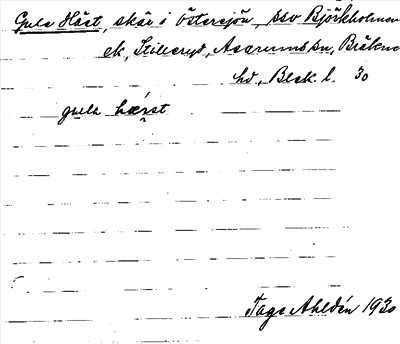 Gula Häst, skär i Östersjön, SSV Björkholmen
ek, Stilleryd, Asarums sn, Bräkne
hd., Blek. l. 30
gula hæst
Tage Ahldén 1930